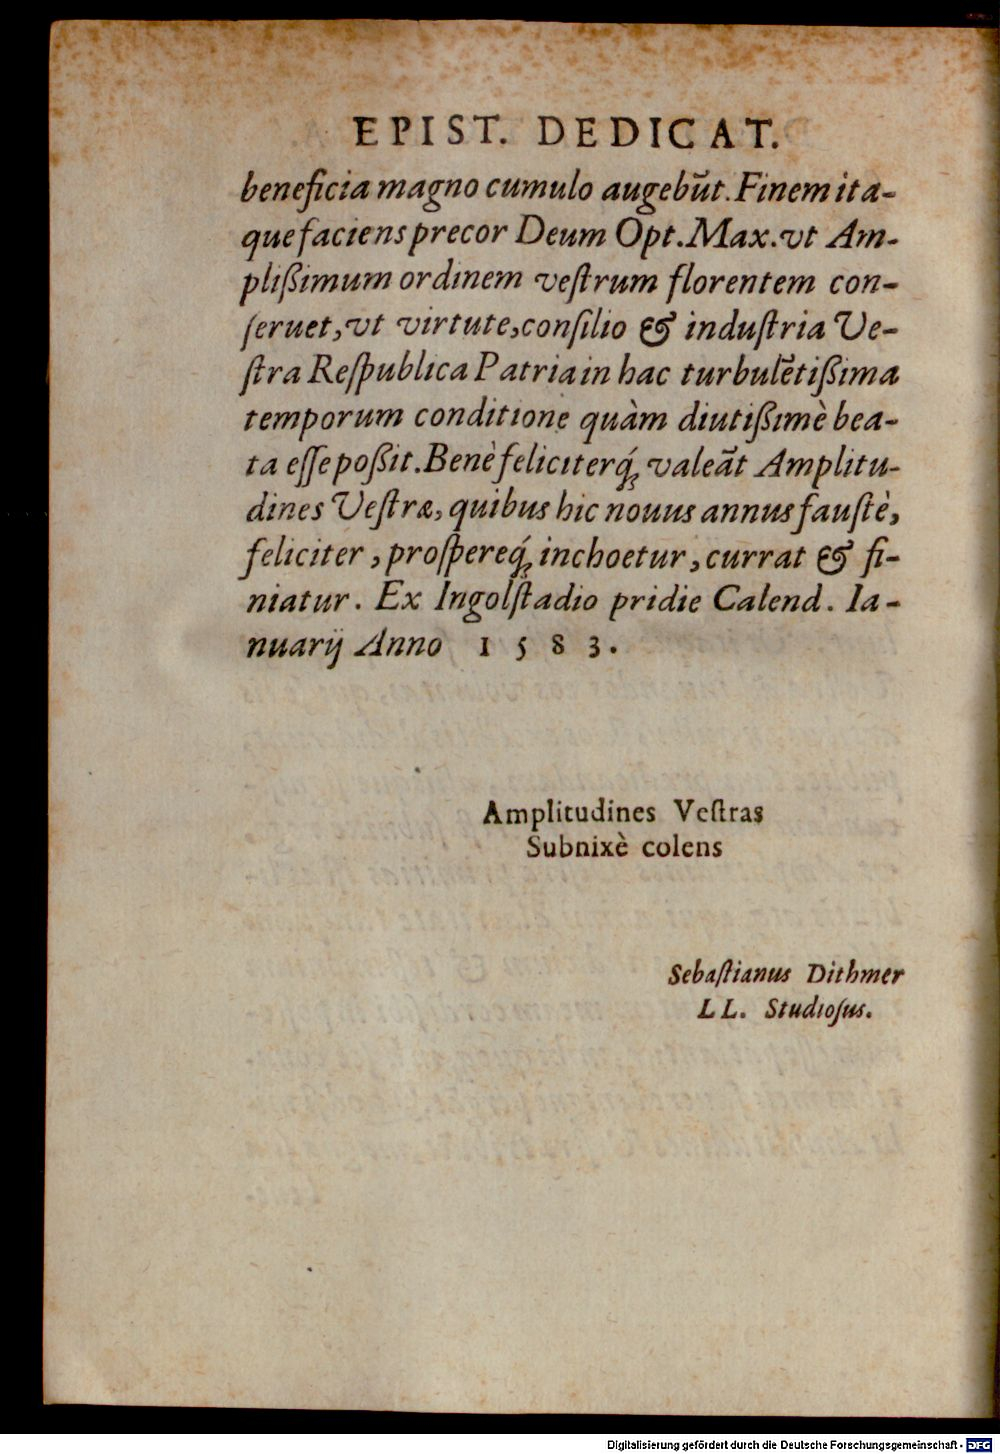 EPIST. DEDICAT.
beneficia magno cumulo augebũt. Finem ita-
que faciens precor Deum Opt. Max. vt Am-
plißimum ordinem veſtrum florentem con-
ſeruet, vt virtute, conſilio & induſtria Ve-
ſtra Reſpublica Patria in hac turbulẽtißima
temporum conditione quàm diutißimè bea-
ta eſſe poßit. Benè feliciterq́; valeãt Amplitu-
dines Veſtræ, quibus hic nouus annus fauſtè,
feliciter, proſpereq́; inchoetur, currat & fi-
niatur. Ex Ingolſtadio pridie Calend. Ia-
nuarij Anno 1583.
Amplitudines Veſtras
Subnixè colens
Sebaſtianus Dithmer
LL. Studioſus.
Digitalisierung gefördert durch die Deutsche Forschungsgemeinschaft - DFG